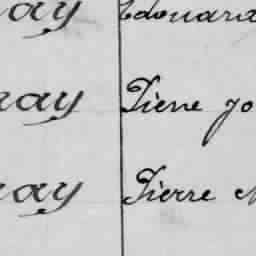 ay Edouard
ray Pierre Jo
ray Pierre